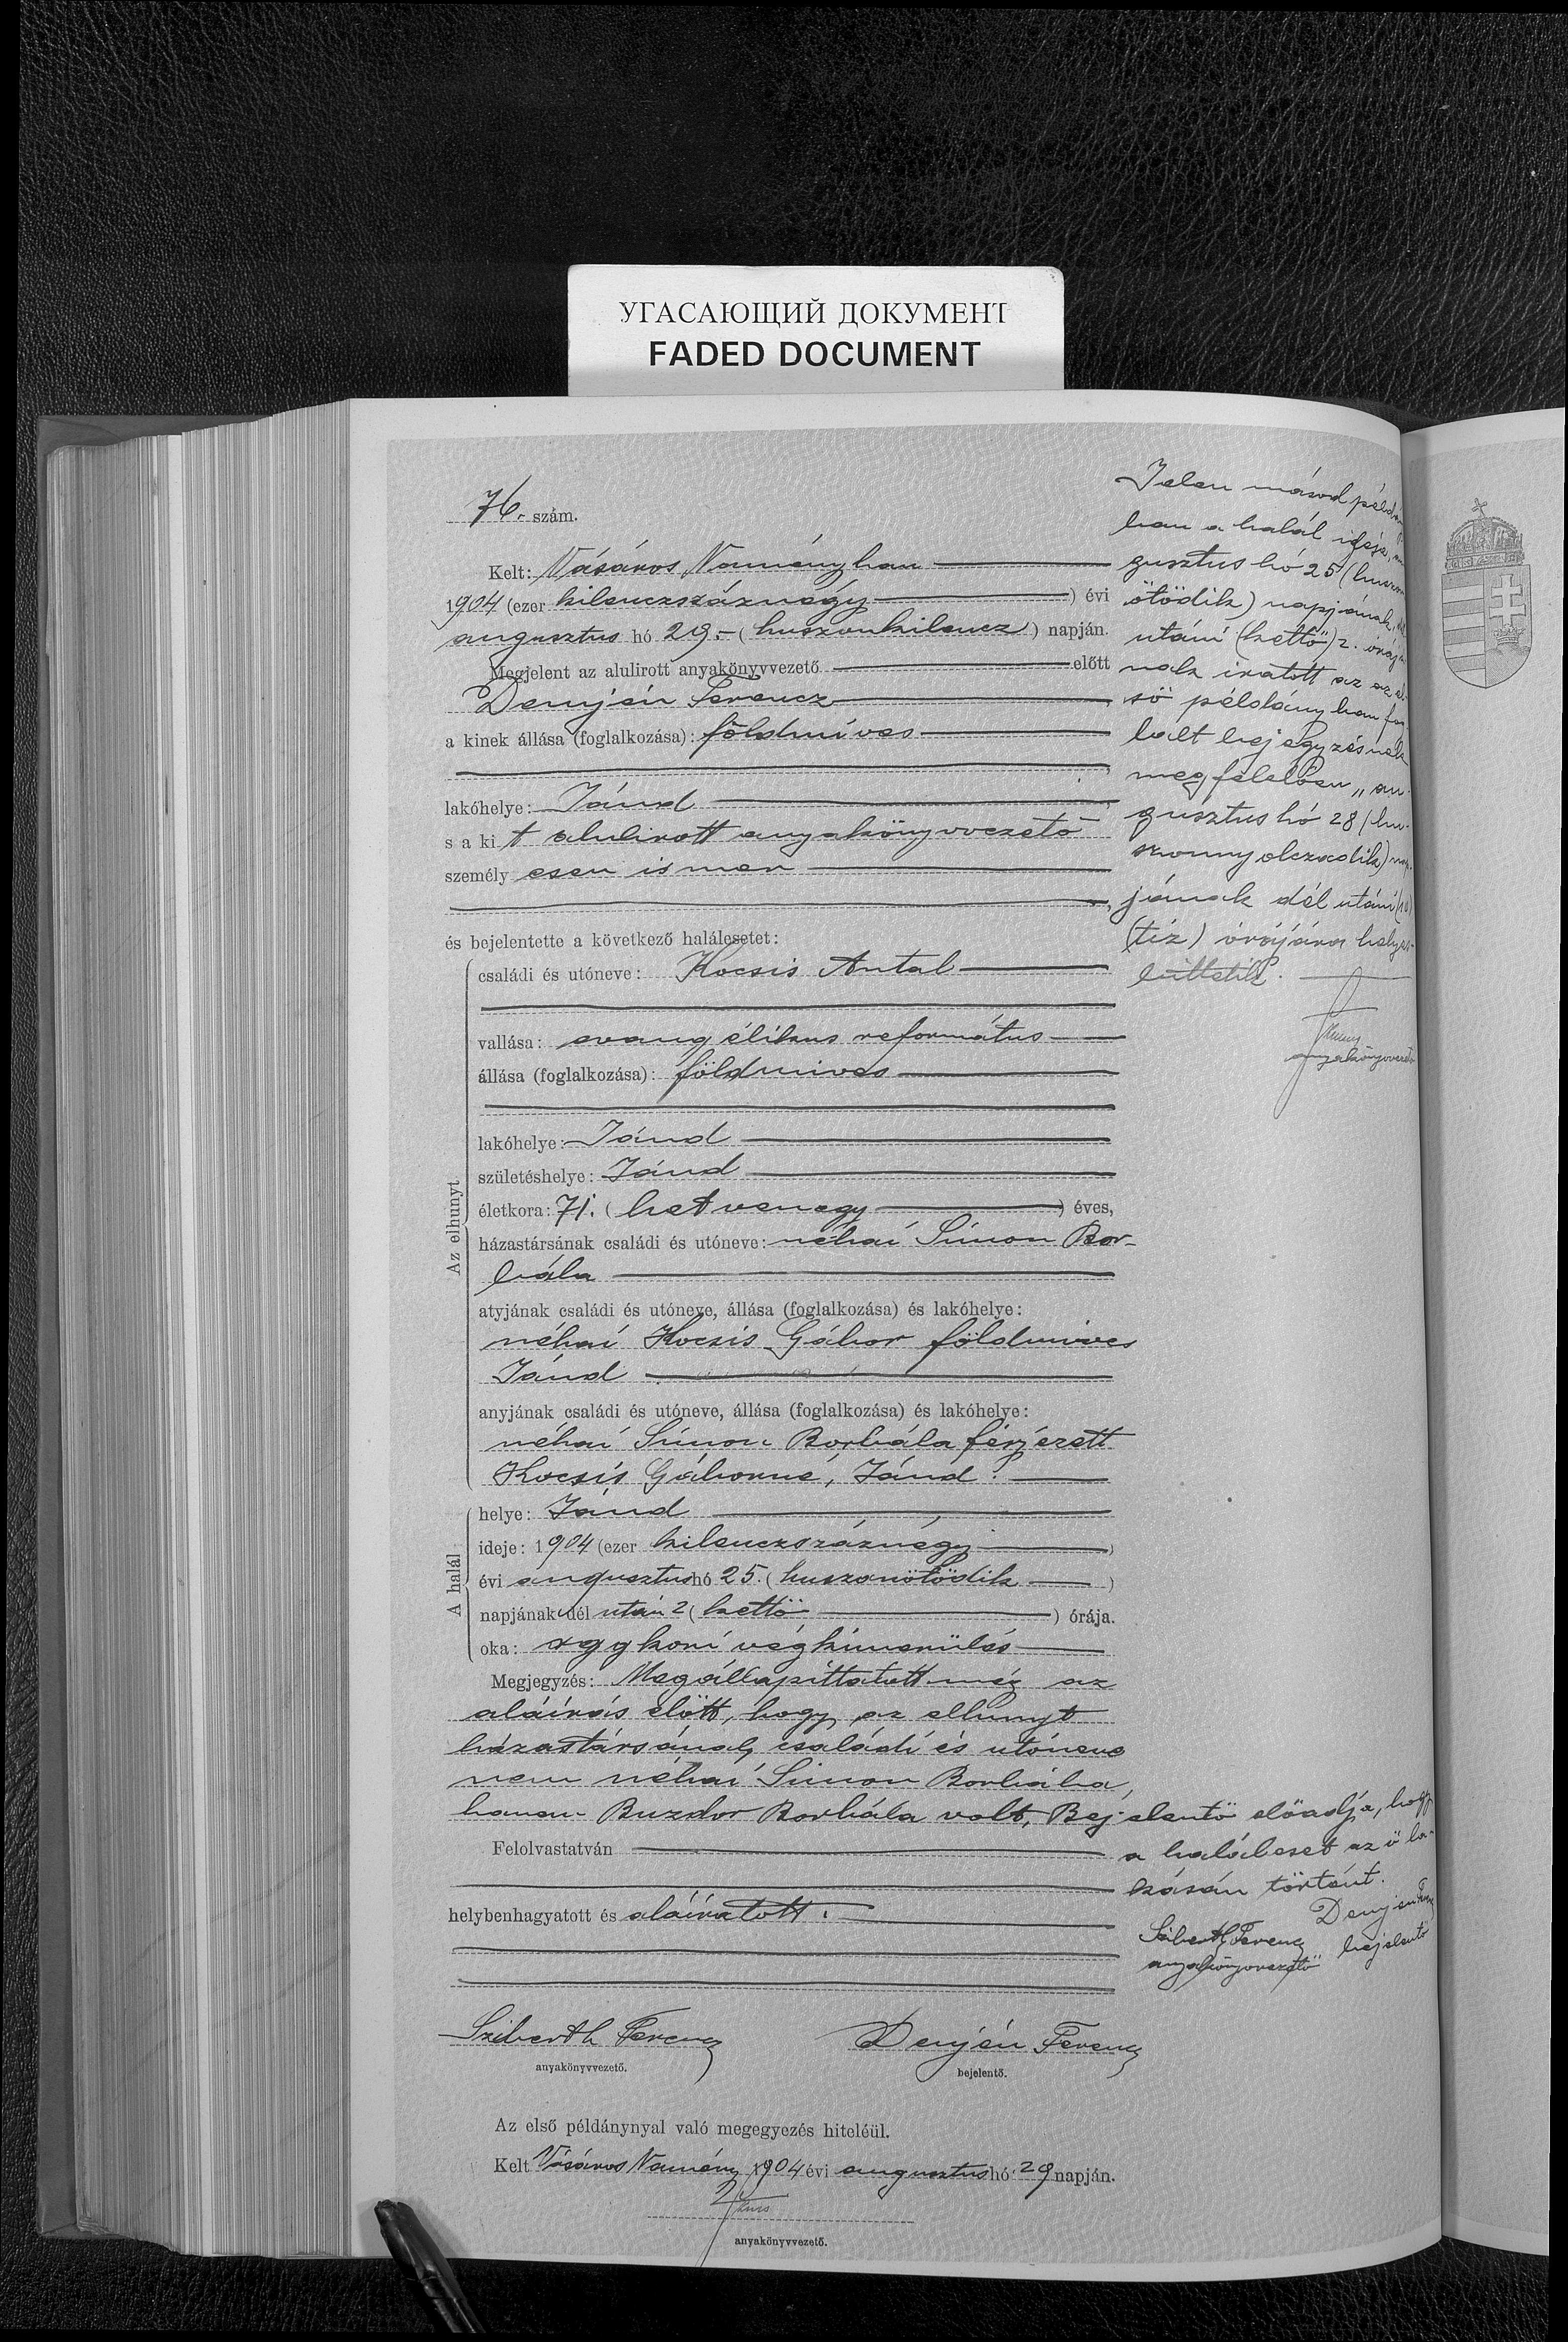 УГАСАЮЩИЙ ДОКУМЕНТ
FADED DOCUMENT
76. szám.
Kelt: Vásáros Naményban
1904 (ezer kilenczszáznégy ) évi
augusztus hó 29.- ( huszonkilencz ) napján.
Megjelent az alulirott anyakönyvvezető előtt
Demjén Ferencz
a kinek állása (foglalkozása): földmíves
lakóhelye: Jánd
s a ki t alulirott anyakönyvvezető
személy esen ismer
és bejelentette a következő halálesetet:
Az elhunyt
családi és utóneve: Kocsis Antal
vallása: evangélikus református
állása (foglalkozása): földmives
lakóhelye: Jánd
születéshelye: Jánd
életkora: 71. ( hetvenegy ) éves,
házastársának családi és utóneve: néhai Simon Bor-
bála
atyjának családi és utóneve, állása (foglalkozása) és lakóhelye:
néhai Kocsis Gábor földmives
Jánd
anyjának családi és utóneve, állása (foglalkozása) és lakóhelye:
néhai Simon Borbála férjezett
Kocsis Gáborné, Jánd.
A halál
helye: Jánd
ideje: 1904 (ezer kilenczszáznégy )
évi augusztus hó 25. ( huszonötödik )
napjának dél után 2 ( kettő ) órája.
oka: aggkori végkimerülés
Megjegyzés: Megállapíttatott még az
aláírás előtt, hogy az elhunyt
házastársának családi és utóneve
nem néhai Simon Borbála,
hanem Buzdor Borbála volt. Bejelentő előadja, hogy
a haláleset az ő la-
kásán történt.
Demjén Ferencz
bejelentő
Sziberth Ferencz
anyakönyvvezető
Felolvastatván
helybenhagyatott és aláíratott.
Sziberth Ferencz
anyakönyvvezető.
Demjén Ferencz
bejelentő.
Az első példánynyal való megegyezés hiteléül.
Kelt Vásáros Namény 1904 évi augusztus hó 29 napján.
anyakönyvvezető.
Jelen másod példány
ban a halál ideje, au
gusztus hó 25 (huszon
ötödik) napjának, dél
utáni (kettő) 2. órájá
nak iratott az az el-
ső példányban fog
lalt bejegyzésnek
megfelelően „au-
gusztus hó 28 (hu-
szonnyolczadik) nap-
jának dél utáni (10)
(tíz) órájára helyes-
bittetik.
anyakönyvvezető